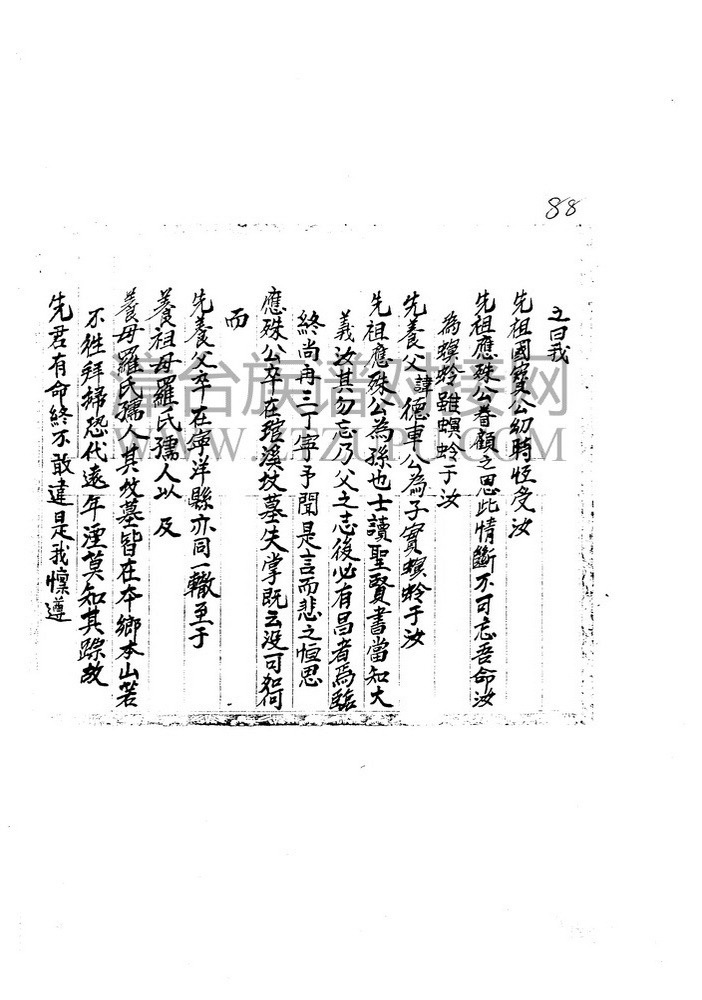 88
之曰我
先祖國寶公幼時恆受汝
先祖應殊公眷顧之恩此情斷不可忘吾命汝
為螟蛉雖螟蛉于汝
先養父諱德車公為子實螟蛉于汝
先祖應殊公為孫也士讀聖賢書當知大
義汝其勿忘乃父之志後必有昌者焉臨
終尚再三丁寧予聞是言而悲之恒思
應殊公卒在琯溪坟墓失掌既云没可如何
而
先養父卒在寧洋縣亦同一轍至于
養祖母羅氏孺人以及
養母羅氏孺人其坟墓皆在本鄉本山若
不往拜掃恐代遠年湮莫知其踪故
先君有命終不敢違是我懍遵
漳台族谱对接网
WWW.ZTZUPU.COM